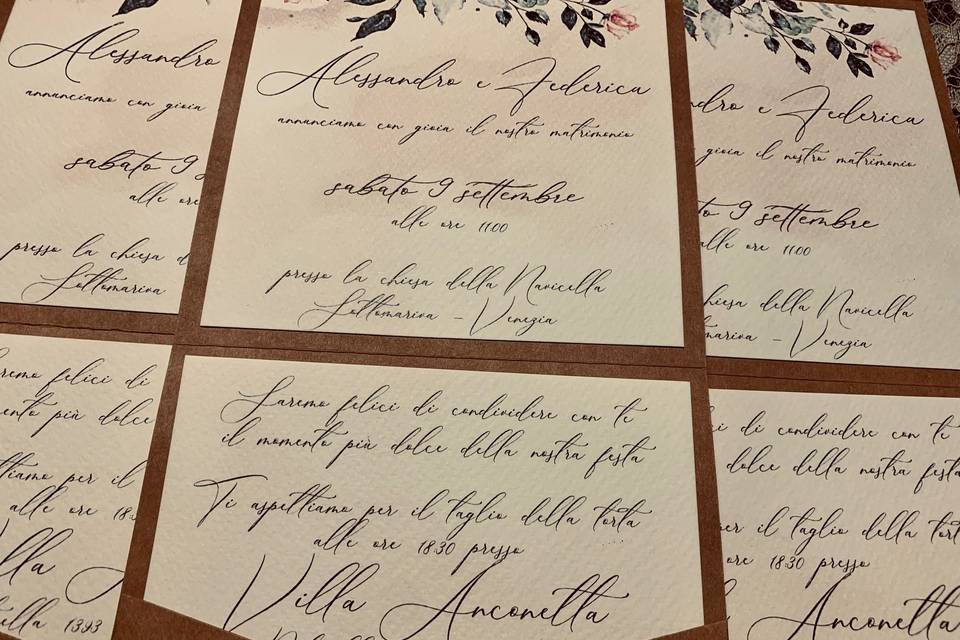 Alessandro
annunciamo con gioia
sabato 9
alle ore
presso la chiesa d
Sottomarina
Alessandro e Federica
annunciamo con gioia il nostro matrimonio
sabato 9 settembre
alle ore 11:00
presso la chiesa della Navicella
Sottomarina - Venezia
ndro e Federica
gioia il nostro matrimonio
to 9 settembre
alle ore 11:00
chiesa della Navicella
marina - Venezia
remo felici di
mento più dolce
ttiamo per il
alle ore 18:
lla
tella 1393
Saremo felici di condividere con te
il momento più dolce della nostra festa
Ti aspettiamo per il taglio della torta
alle ore 18:30 presso
Villa Anconetta
i di condividere con te
dolce della nostra festa
per il taglio della torta
ore 18:30 presso
Anconetta